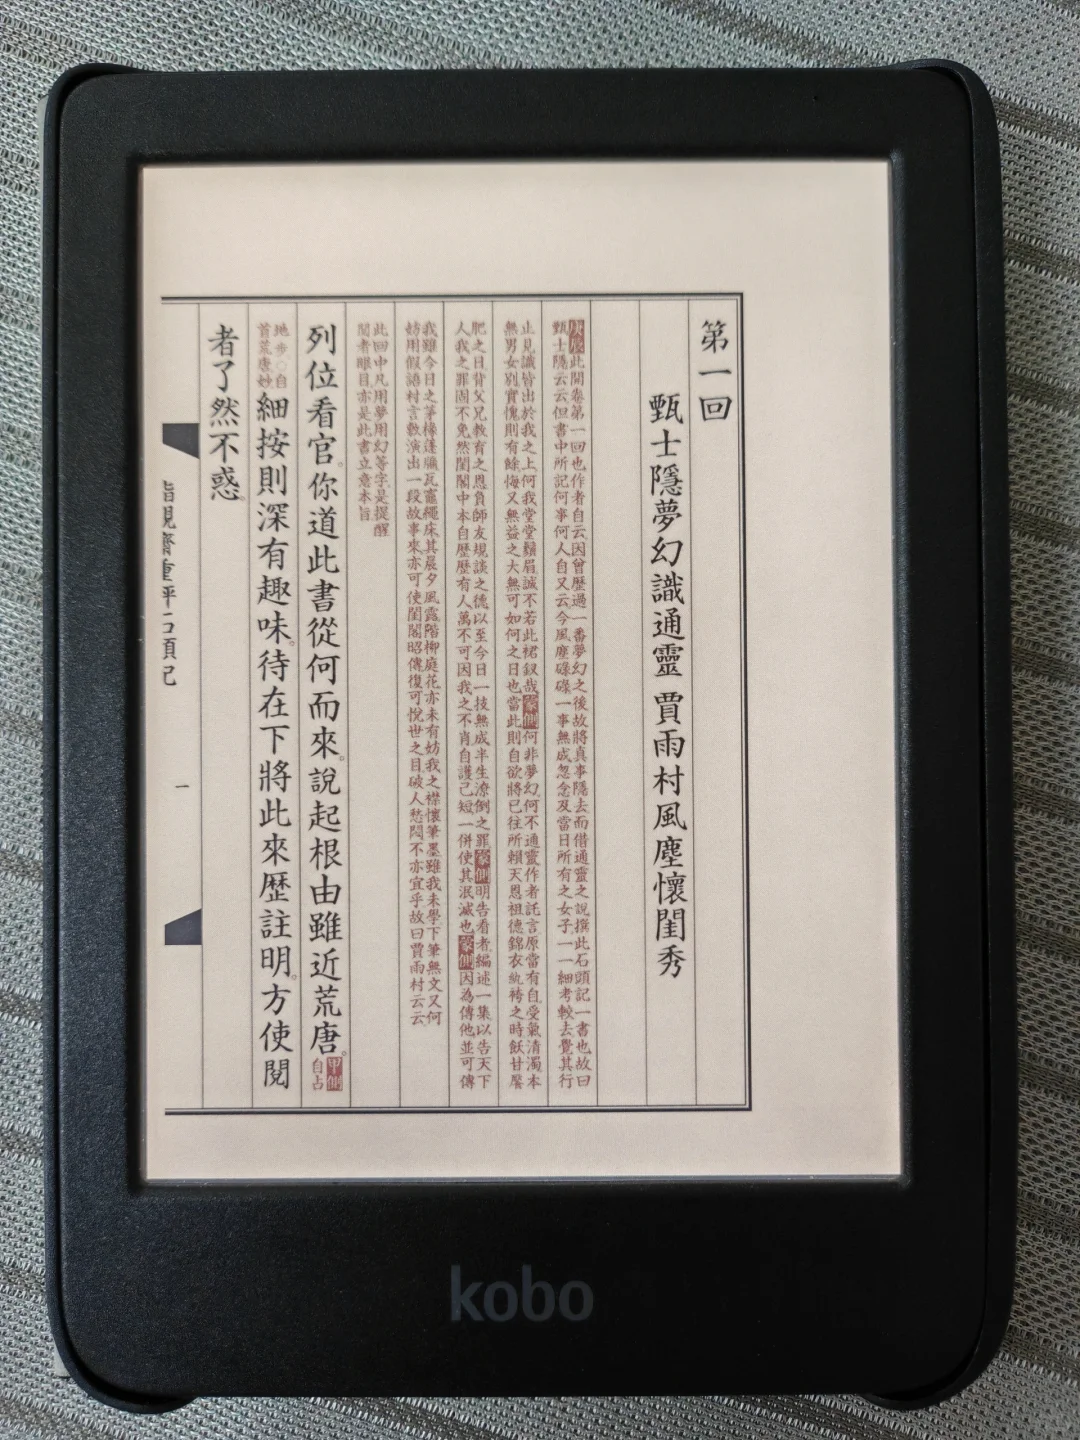 第一回
甄士隱夢幻識通靈 賈雨村風塵懷閨秀
庚辰此開卷第一回也作者自云因曾歷過一番夢幻之後故將真事隱去而借通靈之說撰此石頭記一書也故曰
甄士隱云云但書中所記何事何人自又云今風塵碌碌一事無成忽念及當日所有之女子一一細考較去覺其行
止見識皆出於我之上何我堂堂鬚眉誠不若此裙釵哉蒙側何非夢幻何不通靈作者託言原當有自受氣清濁本
無男女別實愧則有餘悔又無益之大無可如何之日也當此則自欲將已往所賴天恩祖德錦衣紈袴之時飫甘饜
肥之日背父兄教育之恩負師友規談之德以至今日一技無成半生潦倒之罪蒙側明告看者編述一集以告天下
人我之罪固不免然閨閣中本自歷歷有人萬不可因我之不肖自護己短一併使其泯滅也蒙側因為傳他並可傳
我雖今日之茅椽蓬牖瓦竈繩床其晨夕風露階柳庭花亦未有妨我之襟懷筆墨雖我未學下筆無文又何
妨用假語村言敷演出一段故事來亦可使閨閣昭傳復可悅世之目破人愁悶不亦宜乎故曰賈雨村云云
此回中凡用夢用幻等字是提醒
閱者眼目亦是此書立意本旨
列位看官你道此書從何而來說起根由雖近荒唐甲側自占
地步○自首荒唐妙細按則深有趣味待在下將此來歷註明方使閱
者了然不惑
脂硯齋重評石頭記
一
kobo